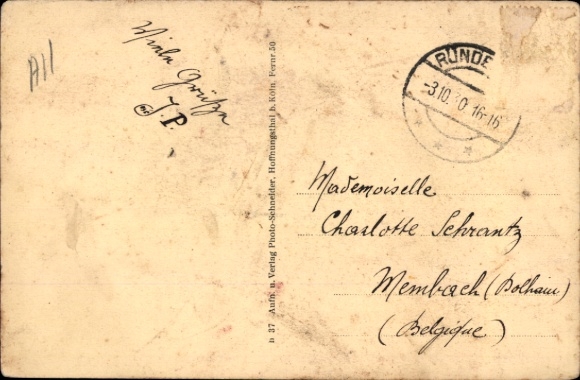 All
Viele Grüße
J. P.
RÜNDE
-3.10.30 16-16
b 37 Aufn. u. Verlag Photo-Schneider, Hoffnungsthal b. Köln, Fernr. 50
Mademoiselle
Charlotte Schrantz
Membach (Dolhain)
(Belgique)